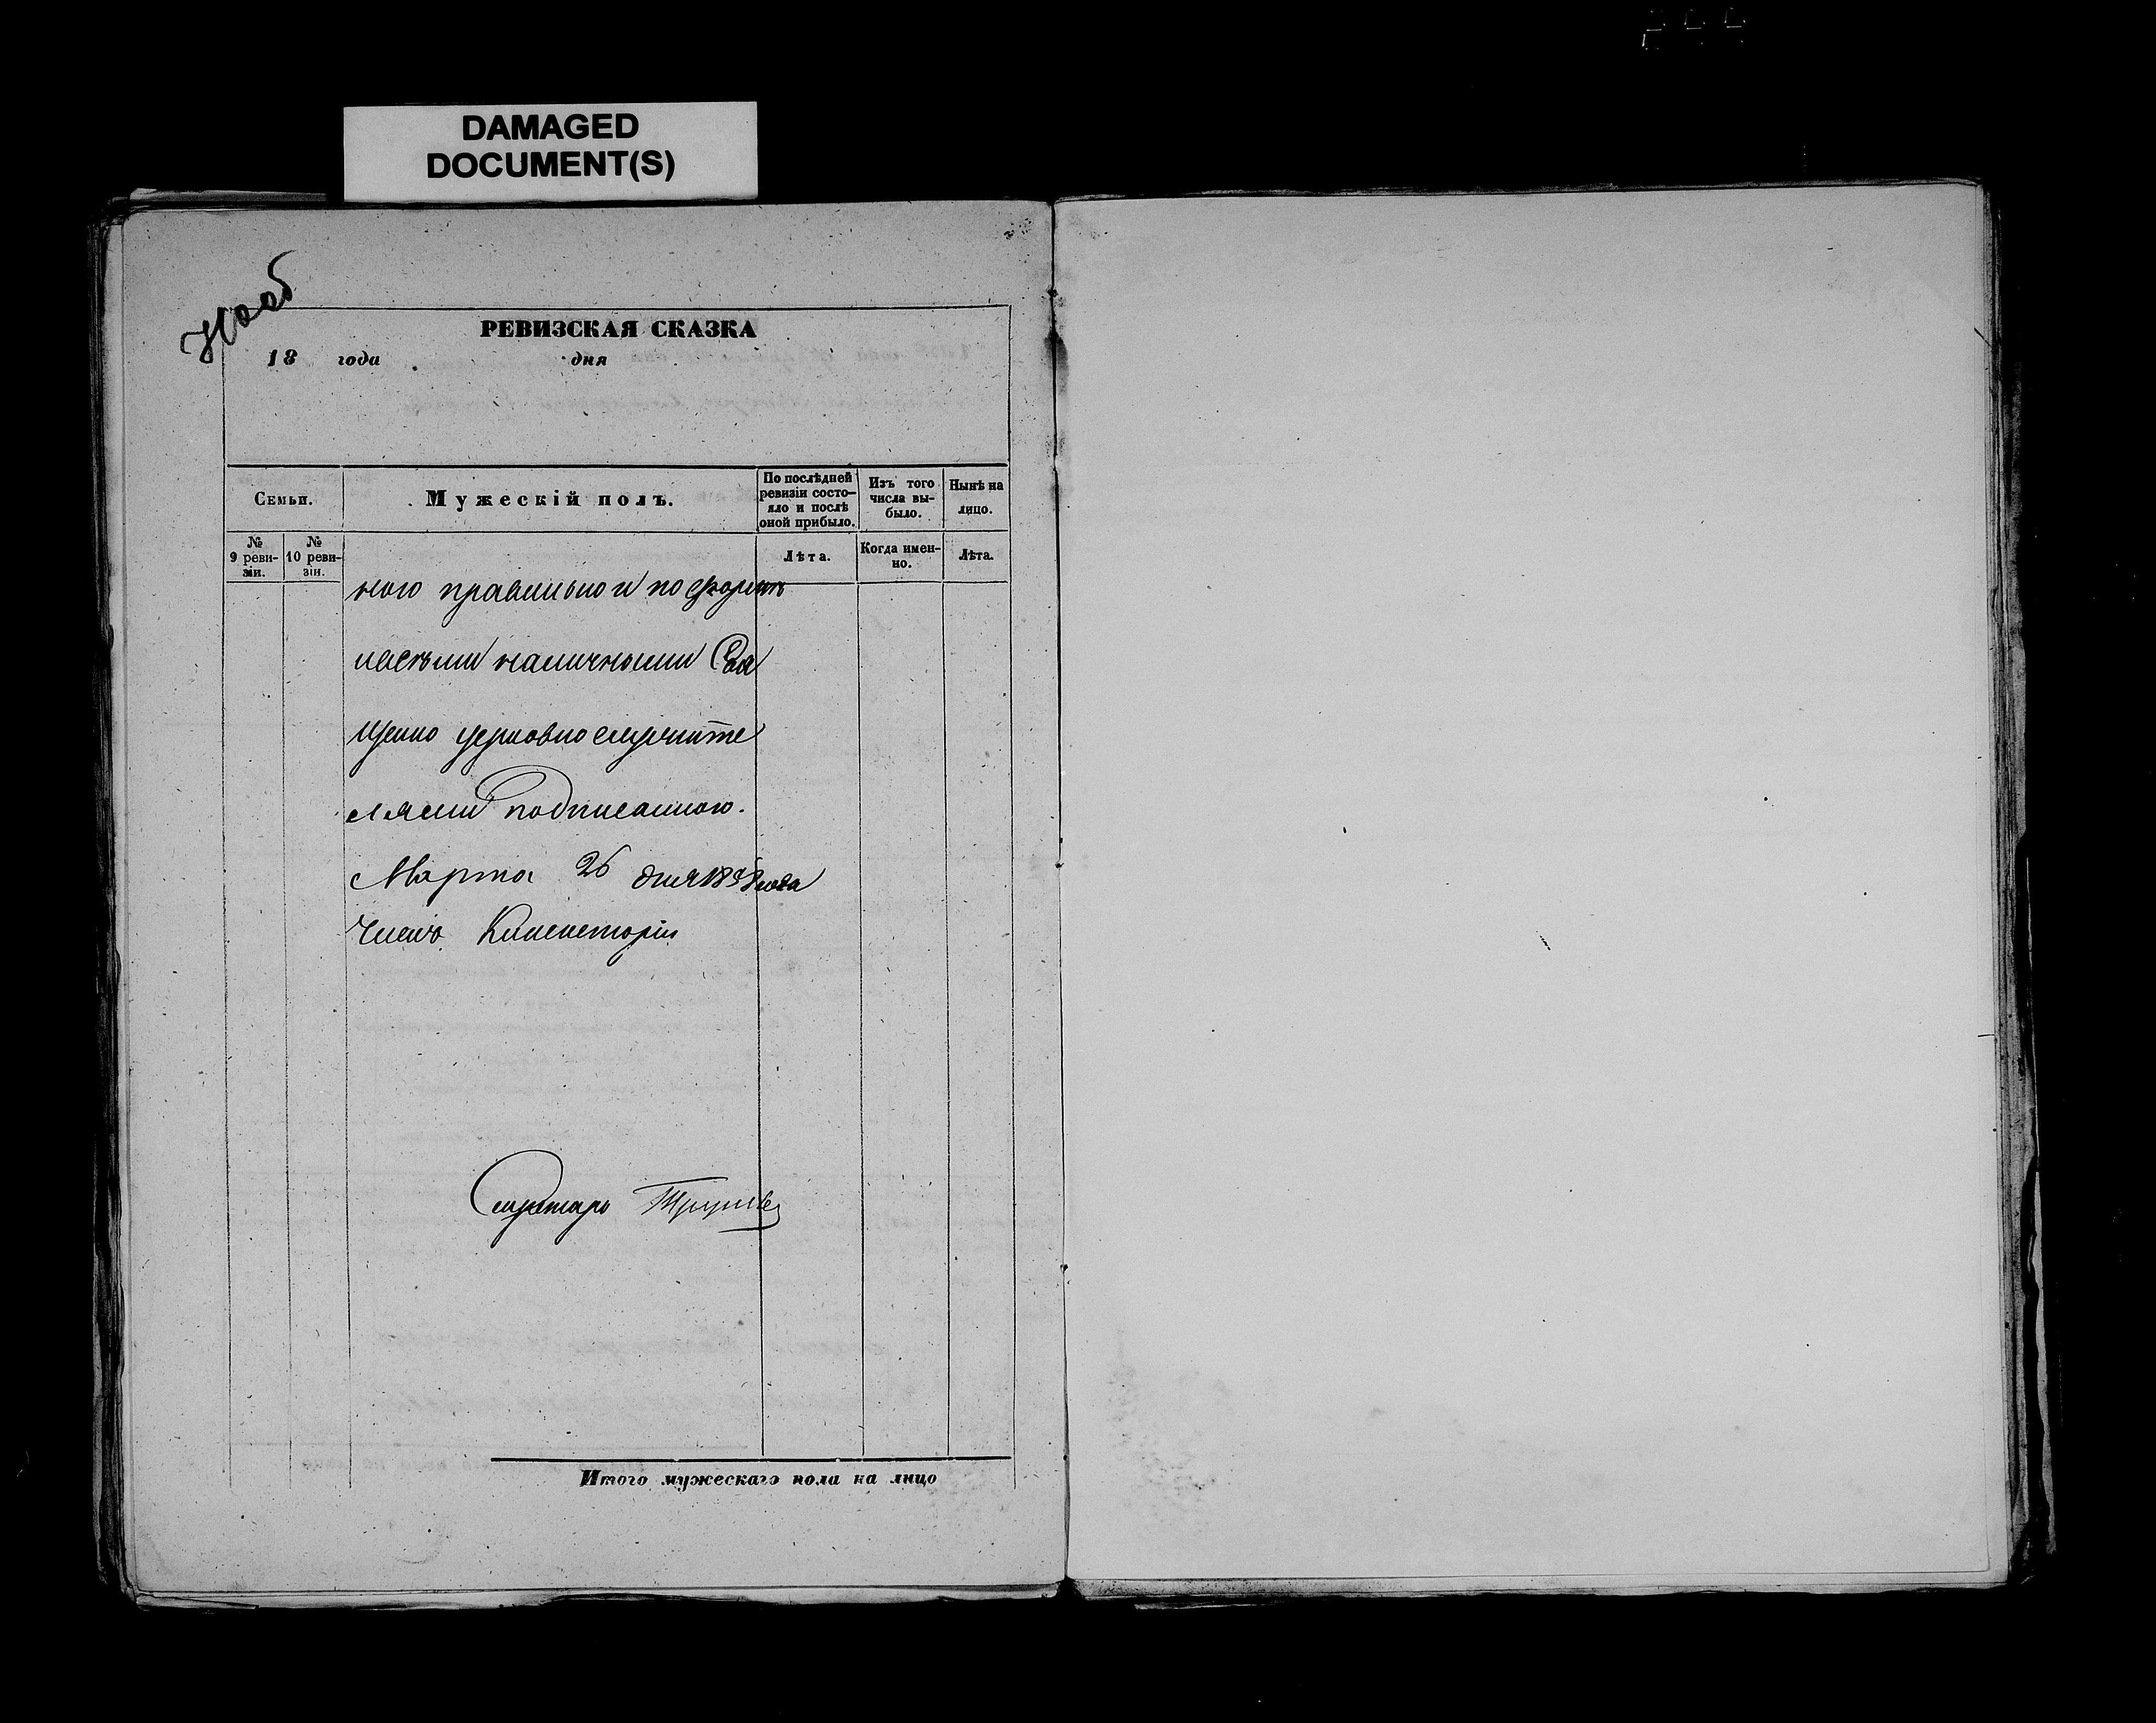 DAMAGED
DOCUMENT(S)
РЕВИЗСКАЯ СКАЗКА
18 года дня
Семьи.
Мужескій полъ.
По послѣдней
ревизіи состо-
яло и послѣ
оной прибыло.
Изъ того
числа вы-
было.
Нынѣ на
лицо.
№
9 реви-
зіи.
№
10 реви-
зіи.
Лѣта.
Когда имен-
но.
Лѣта.
ного правильно и по формѣ
и всѣми наличными Свя
щенно церковнослужите
лями подписанною.
Марта 26 дня 1858 года
Членъ Консисторіи
Секретарь
Итого мужескаго пола на лицо